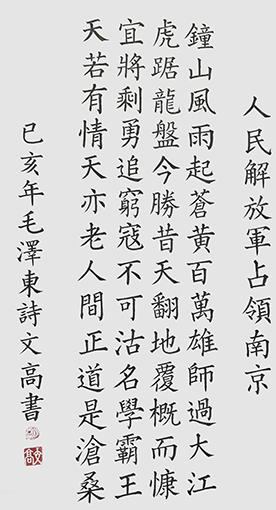 人民解放軍占領南京
鐘山風雨起蒼黃百萬雄師過大江
虎踞龍盤今勝昔天翻地覆概而慷
宜將剩勇追窮寇不可沽名學霸王
天若有情天亦老人間正道是滄桑
已亥年毛澤東詩文高書